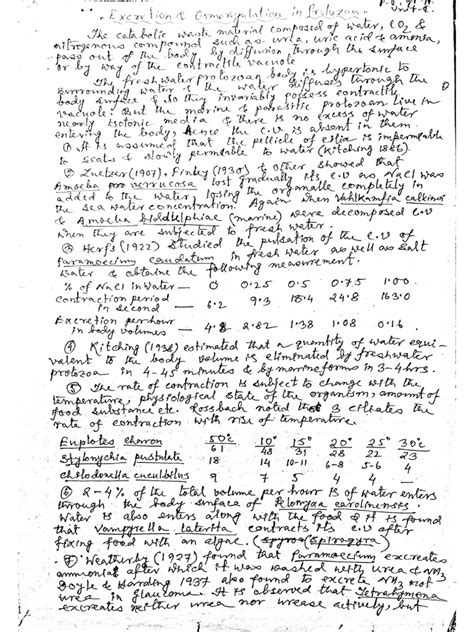 Excretion & Osmoregulation in Protozoa - Unit-I
The catabolic waste material composed of water, CO2 &
nitrogenous compound such as urea, uric acid & amonia,
pass out of the body by diffusion through the surface
or by way of the contractile vacuole
The freshwater protozoan body is hypertonic to
surrounding water & the water diffuses through the
body surface & so they invariably possess contractile
vacuole. But the marine & parasitic protozoan live in
nearly isotonic media & there is no excess of water
entering the body, hence the c.v is absent in them
① It is assumed that the pellicle of is impermeable
to & slowly permeable to water (Kitching
② Zuelzer (1907), Finley (1930) & others showed that
Amoeba verrucosa lost gradually its c.v as NaCl was
added to the water, losing the organelle completely in
the sea water concentration. Again when Vahlkampfia calkinsi
& Amoeba biddulphiae (marine) were decomposed c.v
when they are subjected to fresh water.
③ Herfs (1922) studied the pulsation of the c.v of
Paramoecium caudatum in fresh water as well as salt
water & obtaine the following measurement.
% of NaCl in water — 0 0.25 0.5 0.75 1.00
contraction period
in second — 6.2 9.3 18.4 24.8 163.0
Excretion per hour
in body volumes — 4.8 2.82 1.38 1.08 0.16
④ Kitching (1938) estimated that a quantity of water equi-
valent to the body volume is eliminated by freshwater
protozoa in 4-45 minutes & by marine forms in 3-4 hrs.
⑤ The rate of contraction is subject to change with the
temperature, physiological state of the organism, amount of
food substance etc. Rossbach noted that 3 ciliates the
rate of contraction with rise of temperature.
5°c 10° 15° 20° 25° 30°c
Euplotes charon 61 48 31 28 22 23
Stylonychia pustulata 18 14 10-11 6-8 5-6 4
Chilodonella cucullulus 9 7 5 4 4 -
⑥ 2-4% of the total volume per hour is of water enters
through the body surface of Pelomyxa carolinensis.
Water is also enters along with the food & it is found
that Vampyrella lateritia contracts its c.v after
fixing food with an algae. (Spirogyra)
⑦ Weatherby (1927) found that Paramoecium excretes
ammonia after which it was washed with urea & NH3
Doyle & Harding 1937 also found to excrete NH3 not
urea in Glaucoma. It is observed that Tetrahymena
excreates neither urea nor urease actively, but